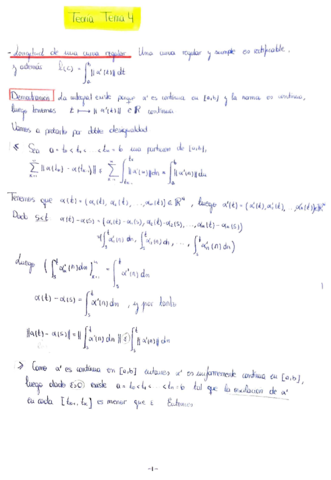 Tema Tema 4
- Longitud de una curva regular. Una curva regular y simple es rectificable
y además L(C) = ∫_a^b ||α'(t)|| dt
Demostración La integral existe porque α' es continua en [a,b] y la norma es continua,
luego tenemos t ⟼ ||α'(t)|| ∈ ℝ continua
Vamos a probarlo por doble desigualdad
Sea a = t₀ < t₁ < ... < tₘ = b una partición de [a,b],
Tenemos que α(t) = (α₁(t), α₂(t), ..., αₙ(t)) ∈ ℝⁿ, luego α'(t) = (α₁'(t), α₂'(t), ..., αₙ'(t)) ∈ ℝⁿ
Dado s≤t α(t) - α(s) = (α₁(t) - α₁(s), α₂(t) - α₂(s), ..., αₙ(t) - αₙ(s))
Luego
α(t) - α(s) = ∫_s^t α'(u) du, y por tanto
||α(t) - α(s)|| = ||∫_s^t α'(u) du|| ≤ ∫_s^t ||α'(u)|| du
≥ Como α' es continua en [a,b] entonces α' es uniformemente continua en [a,b],
luego dado ε>0 existe a = t₀ < t₁ < ... < tₘ = b tal que la oscilación de α'
en cada es menor que ε. Entonces
-1-